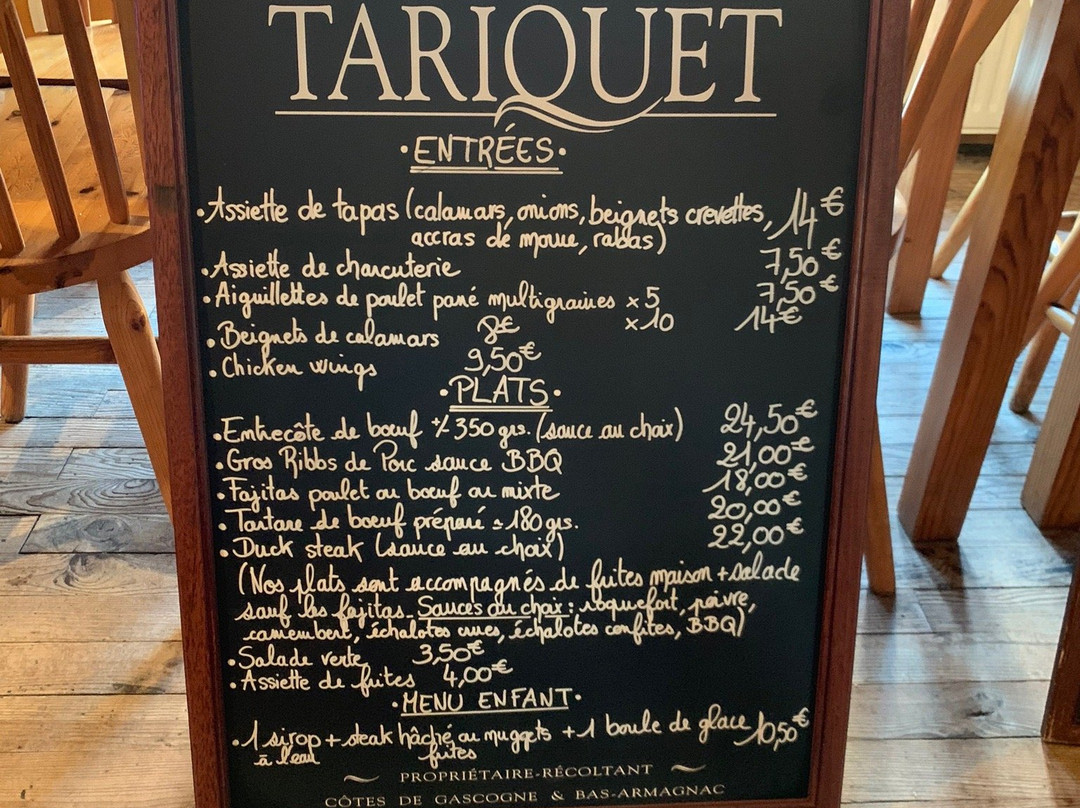 TARIQUET
• ENTRÉES •
• Assiette de tapas (calamars, onions, beignets crevettes, 14€
accras de morue, rabas)
• Assiette de charcuterie 7,50€
• Aiguillettes de poulet pané multigraines x 5 7,50€
x 10 14€
• Beignets de calamars 8€
• Chicken wings 9,50€
• PLATS •
• Entrecôte de bœuf +/- 350 grs. (sauce au choix) 24,50€
• Gros Ribbs de Porc sauce BBQ 21,00€
• Fajitas poulet ou boeuf ou mixte 18,00€
• Tartare de boeuf préparé ≃ 180 grs. 20,00€
• Duck steak (sauce au choix) 22,00€
(Nos plats sont accompagnés de frites maison + salade
sauf les fajitas. Sauces au choix : roquefort, poivre,
camembert, échalotes crues, échalotes confites, BBQ)
• Salade verte 3,50€
• Assiette de frites 4,00€
• MENU ENFANT •
• 1 sirop + steak hâché ou nuggets + 1 boule de glace 10,50€
à l'eau frites
PROPRIÉTAIRE-RÉCOLTANT
CÔTES DE GASCOGNE & BAS-ARMAGNAC